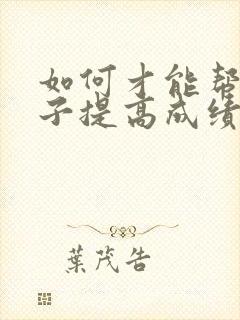 如何才能帮
子提高成绩
葉茂告